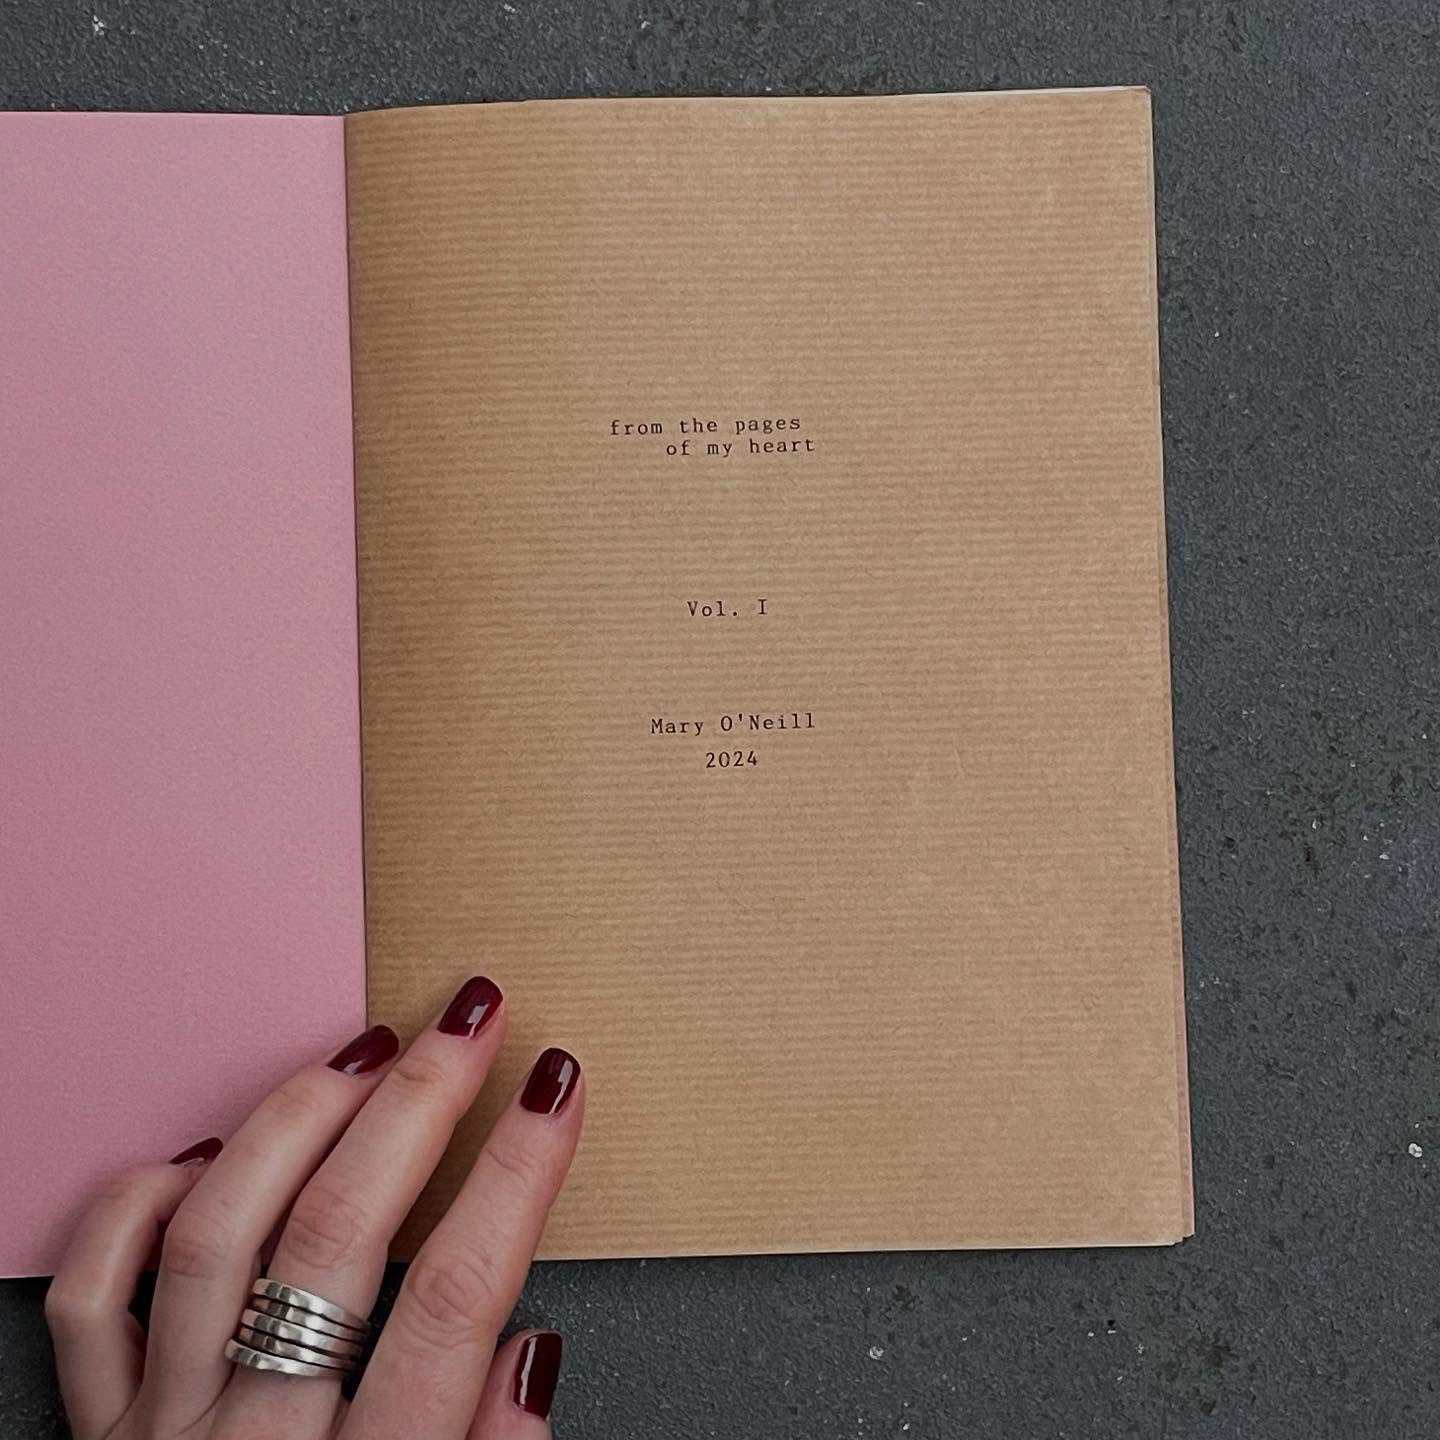 from the pages
of my heart
Vol. I
Mary O'Neill
2024